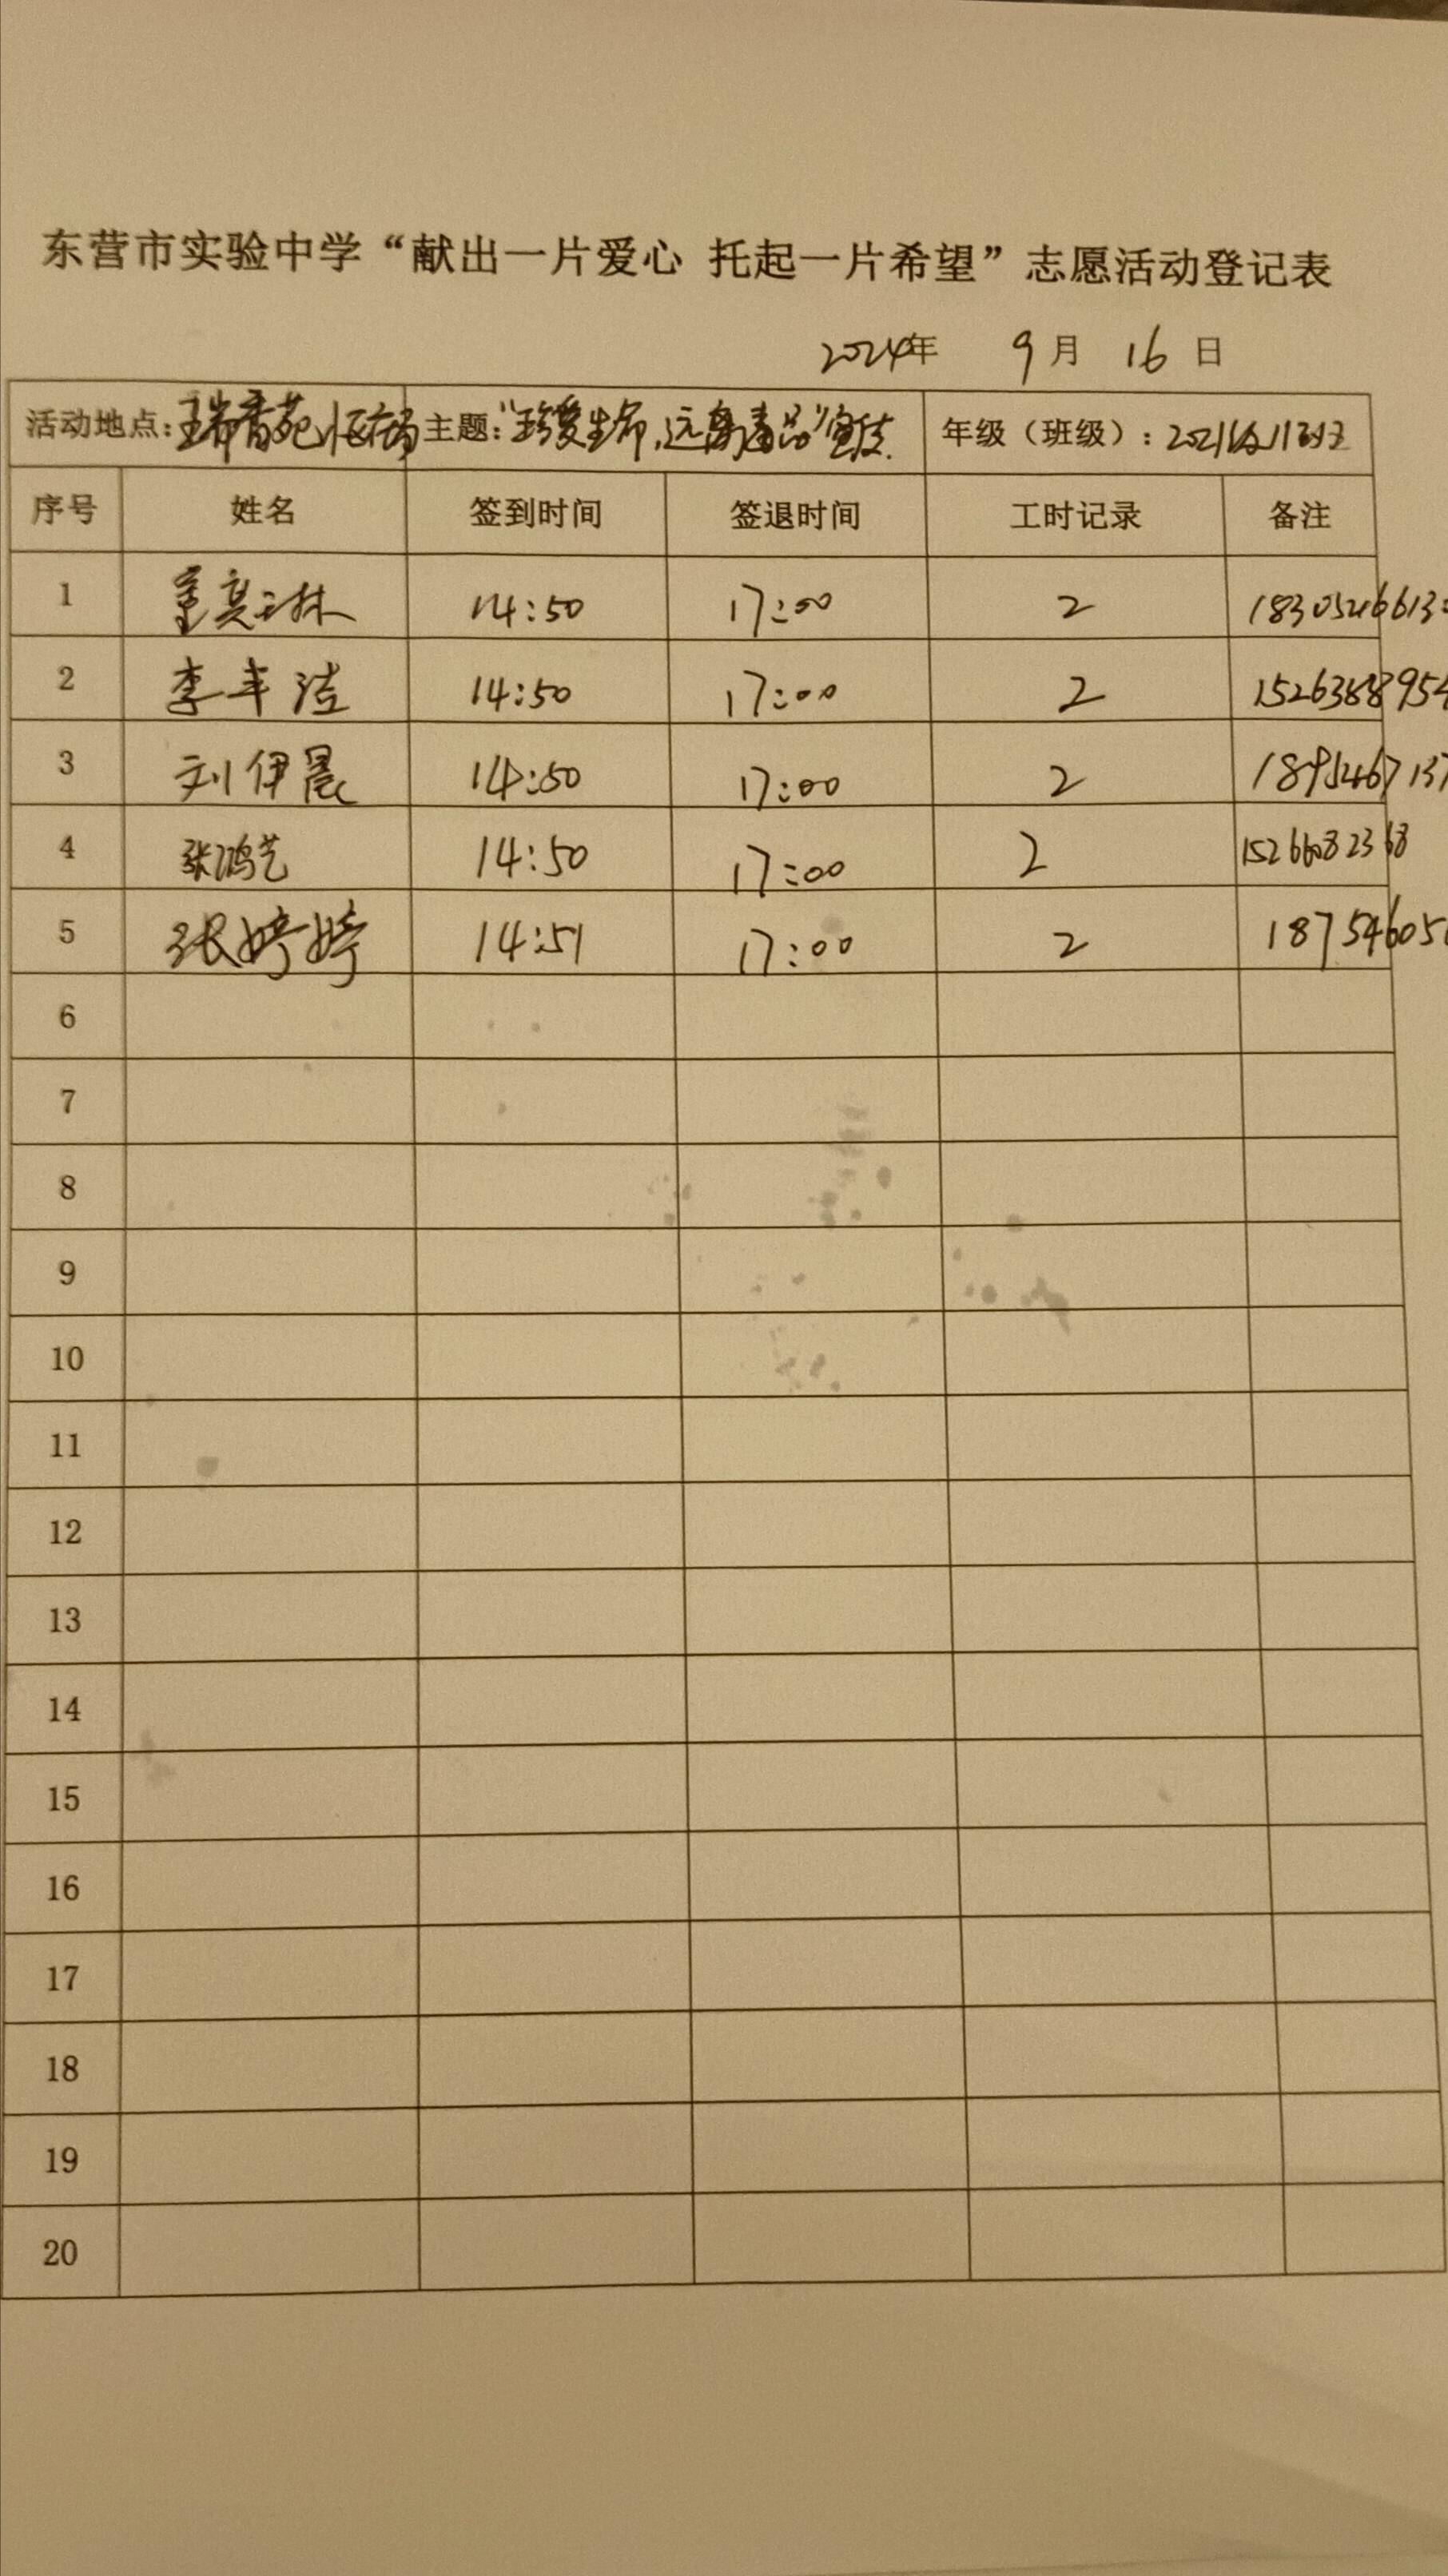 东营市实验中学“献出一片爱心 托起一片希望”志愿活动登记表
2024年 9月 16日
活动地点：瑞香苑 主题：“珍爱生命，远离毒品”宣传. 年级（班级）：2021级11班
序号 姓名 签到时间 签退时间 工时记录 备注
1 董 林 14:50 17:00 2
2 李丰洁 14:50 17:00 2 1526388954
3 刘伊晨 14:50 17:00 2
4 张鸿艺 14:50 17:00 2
5 张婷婷 14:51 17:00 2 187546050
6
7
8
9
10
11
12
13
14
15
16
17
18
19
20